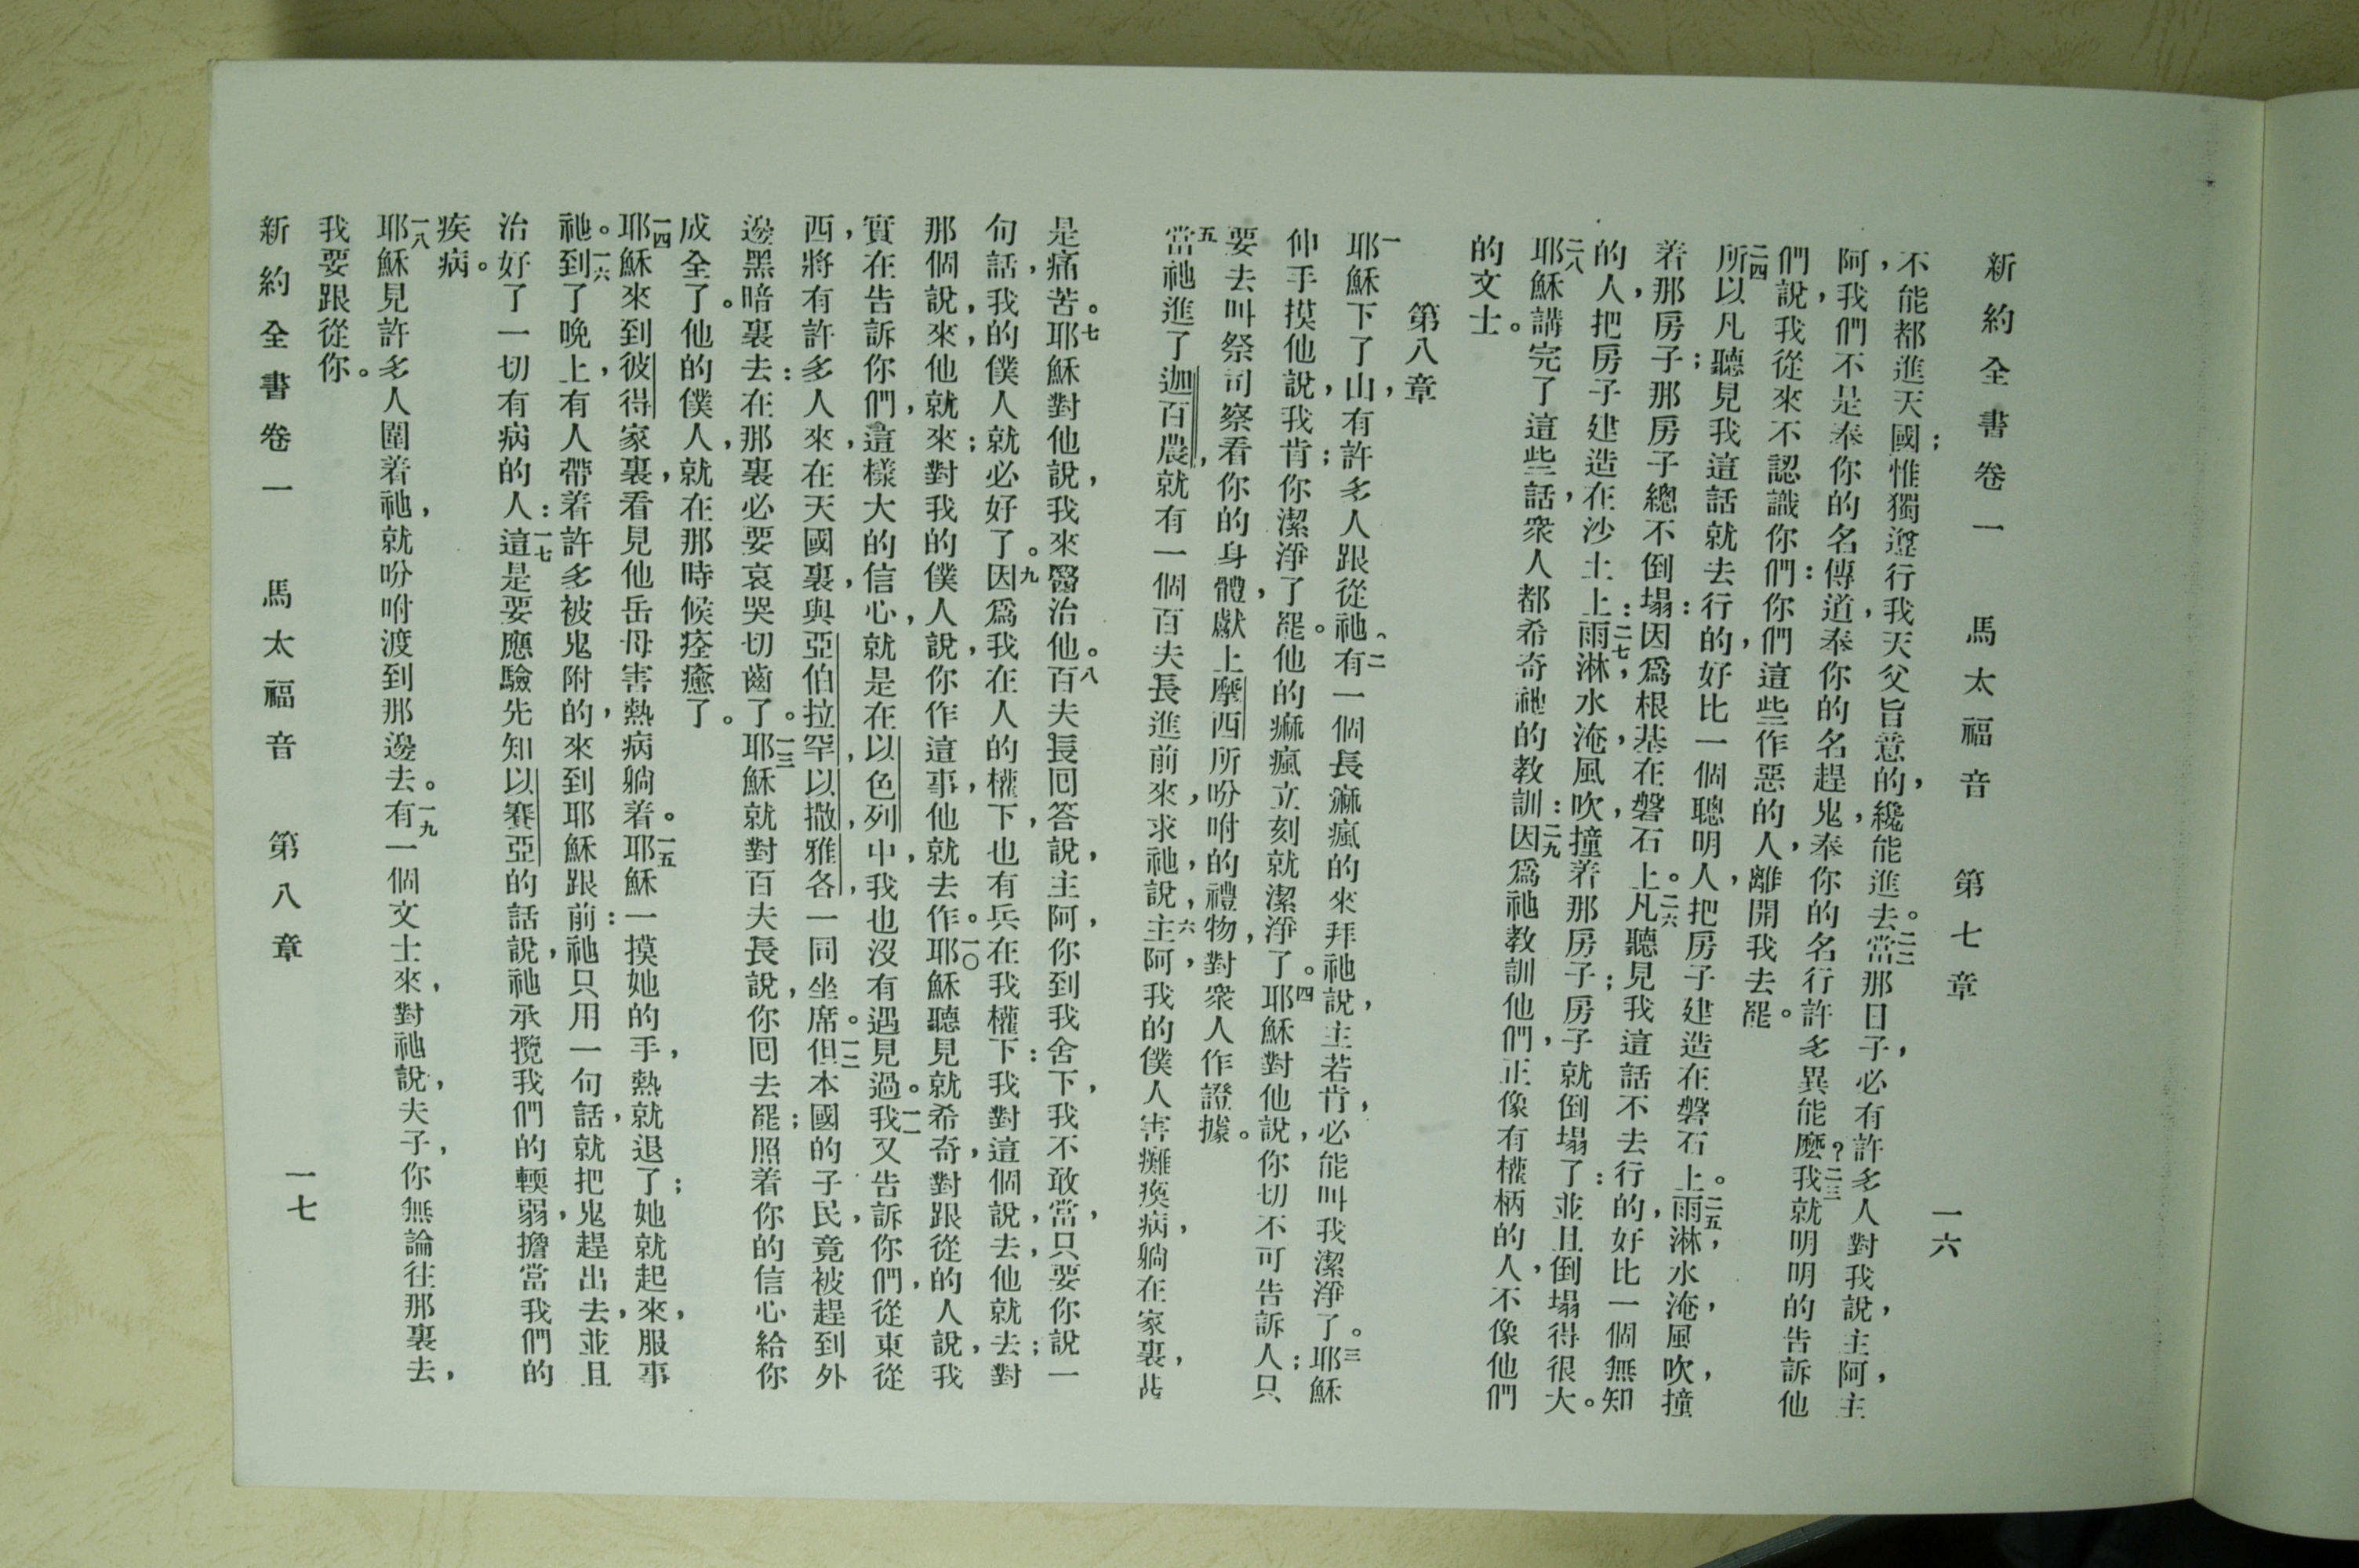 新約全書卷一　馬太福音　第七章　一六
不能都進天國；惟獨遵行我天父旨意的，纔能進去。二二當那日子，必有許多人對我說，主阿，主
阿，我們不是奉你的名傳道，奉你的名趕鬼，奉你的名行許多異能麼？二三我就明明的告訴他
們說，我從來不認識你們：你們這些作惡的人，離開我去罷。
二四所以凡聽見我這話就去行的，好比一個聰明人，把房子建造在磐石上。二五雨淋，水淹，風吹，撞
着那房子；那房子總不倒塌：因爲根基在磐石上。二六凡聽見我這話不去行的，好比一個無知
的人，把房子建造在沙土上：二七雨淋，水淹，風吹，撞着那房子；房子就倒塌了：並且倒塌得很大。
二八耶穌講完了這些話，衆人都希奇祂的教訓：二九因爲祂教訓他們，正像有權柄的人，不像他們
的文士。
第八章
一耶穌下了山，有許多人跟從祂。二有一個長痲瘋的來拜祂說，主若肯，必能叫我潔淨了。三耶穌
伸手摸他說，我肯；你潔淨了罷。他的痲瘋立刻就潔淨了。四耶穌對他說，你切不可告訴人；只
要去叫祭司察看你的身體，獻上摩西所吩咐的禮物，對衆人作證據。
五當祂進了迦百農，就有一個百夫長進前來，求祂說，六主阿，我的僕人害癱瘓病，躺在家裏，甚
是痛苦。七耶穌對他說，我來醫治他。八百夫長囘答說，主阿，你到我舍下，我不敢當，只要你說一
句話，我的僕人就必好了。九因爲我在人的權下，也有兵在我權下：我對這個說，去，他就去；對
那個說，來，他就來；對我的僕人說，你作這事，他就去作。一〇耶穌聽見就希奇，對跟從的人說，我
實在告訴你們，這樣大的信心，就是在以色列中，我也沒有遇見過。一一我又告訴你們，從東從
西，將有許多人來，在天國裏，與亞伯拉罕，以撒，雅各，一同坐席。一二但本國的子民，竟被趕到外
邊黑暗裏去：在那裏必要哀哭切齒了。一三耶穌就對百夫長說，你囘去罷；照着你的信心給你
成全了。他的僕人，就在那時候痊癒了。
一四耶穌來到彼得家裏，看見他岳母害熱病躺着。一五耶穌一摸她的手，熱就退了；她就起來，服事
祂。一六到了晚上，有人帶着許多被鬼附的，來到耶穌跟前：祂只用一句話，就把鬼趕出去，並且
治好了一切有病的人：一七這是要應驗先知以賽亞的話說，祂承攬我們的輭弱，擔當我們的
疾病。
一八耶穌見許多人圍着祂，就吩咐渡到那邊去。一九有一個文士來，對祂說，夫子，你無論往那裏去，
我要跟從你。
新約全書卷一　馬太福音　第八章　一七